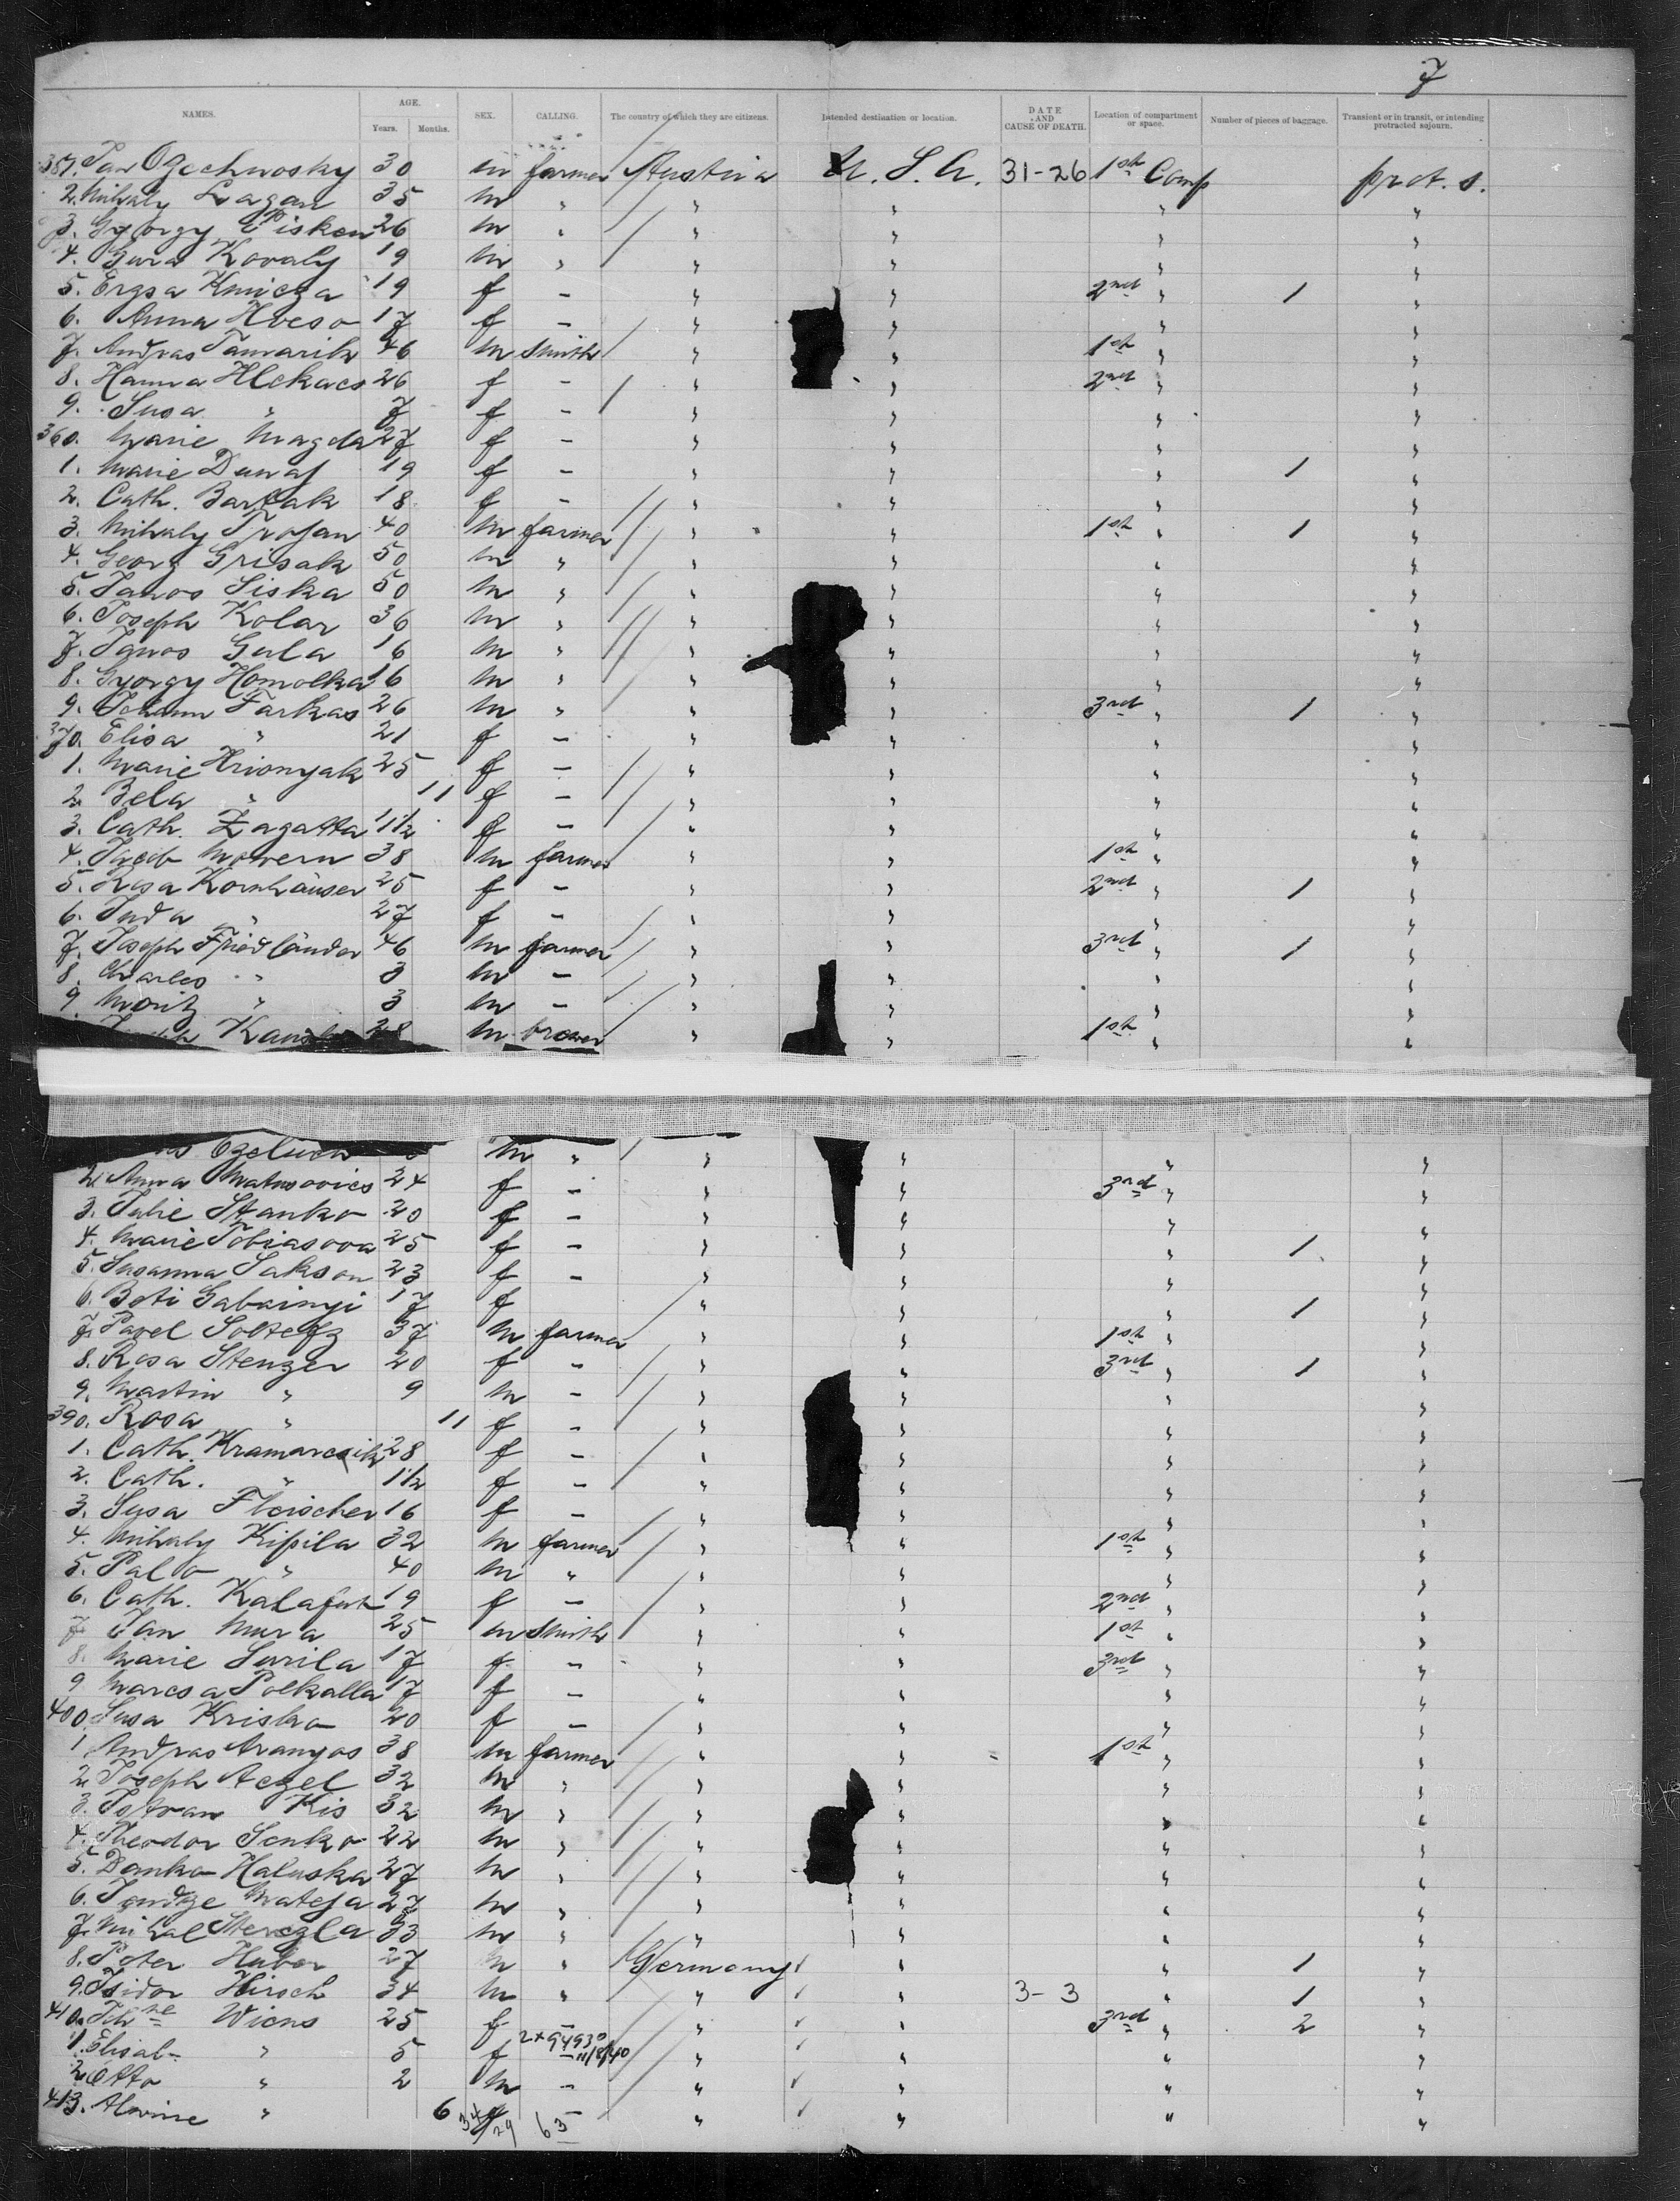 7
NAMES. AGE. Years. Months. SEX. CALLING. The country of which they are citizens. Intended destination or location. DATE AND CAUSE OF DEATH. Location of compartment or space. Number of pieces of baggage. Transient or in transit, or intending protracted sojourn.
351. Jan Ozechnosky 30 m farmer Austria U. S. A. 31-26 1st Comp prot. s.
2. Mihaly Lagan 35 m " " " " "
3. György Pisken 26 m " " " " "
4. Kovaly 19 m " " " " "
5. Ersa Kmicza 19 f - " " 2nd " 1 "
6. Anna Hveso 17 f - " " " "
7. Andras Tamarik 46 m smith " " 1st " "
8. Hanna Hlekacs 26 f - " " 2nd " "
9. Susa " 7 f - " " " "
360. Marie Magda 27 f - " " " "
1. Marie Dunaj 19 f - " " " 1 "
2. Cath. Bartak 18 f - " " " "
3. Mihaly Trojan 40 m farmer " " 1st " 1 "
4. Georg Grisak 50 m " " " " "
5. Janos Siska 50 m " " " " "
6. Joseph Kolar 36 m " " " " "
7. Janos Gula 16 m " " " " "
8. György Homolka 16 m " " " " "
9. Johann Farkas 26 m " " " 3rd " 1 "
370. Elisa " 21 f - " " " "
1. Marie Hrionyak 25 f - " " " "
2. Bela " 11 f - " " " "
3. Cath. Zagatta 1 1/2 f - " " " "
4. Jacob Movern 38 m farmer " " 1st " "
5. Rosa Kornhäuser 25 f - " " 2nd " 1 "
6. Juda " 27 f - " " " "
7. Joseph Friedländer 46 m farmer " " 3rd " 1 "
8. Charles " 3 m - " " " "
9. Moritz " 3 m - " " " "
28 m brewer " " 1st " "
Ozeluch m " " " " "
2. Anna Matusovics 24 f - " " 3rd " "
3. Julie Stanko 20 f - " " " "
4. Marie Tobiasova 25 f - " " " 1 "
5. Susanna Sakson 23 f - " " " "
6. Boti Gabrinyi 17 f " " " 1 "
7. Pavel Soltesz 37 m farmer " " 1st " "
8. Rosa Stenzer 20 f - " " 3rd " 1 "
9. Martin " 9 m - " " " "
390. Rosa " 11 f - " " " "
1. Cath. Kramarcsik 28 f - " " " "
2. Cath. " 1 1/2 f - " " " "
3. Susa Fleischer 16 f - " " " "
4. Mihaly Kipila 32 m farmer " " 1st " "
5. Palo " 40 m " " " " "
6. Cath. Kalafut 19 f - " " 2nd " "
7. Jan Mura 25 m smith " " 1st " "
8. Marie Surila 17 f - " " 3rd " "
9 Marcsa Polkalla 17 f - " " " "
400 Susa Krisko 20 f - " " " "
1 Andras Aranyos 38 m farmer " " 1st " "
2. Joseph Aczel 32 m " " " " "
3. Istvan Kis 32 m " " " " "
4. Theodor Senko 22 m " " " " "
5. Danko Haluska 27 m " " " " "
6. Mateja 27 m " " " " "
7. Mihal Sterczla 33 m " " " " "
8. Peter Huber 27 m " Germany " " 1 "
9. Isidor Hirsch 34 m " " " 3-3 " 1 "
410. Wiens 25 f - " " 3rd " 2 "
1. Elisab. " 5 f - 2x94930 11/8/40 " " " "
2. Otto " 2 m - " " " "
413. Alwine " 6 f - " " " "